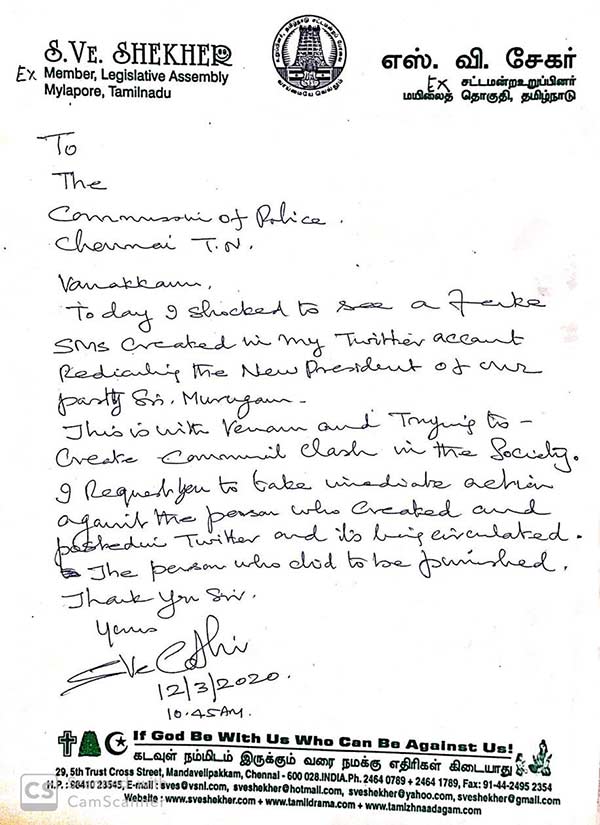 S.VE. SHEKHER
Ex Member, Legislative Assembly
Mylapore, Tamilnadu
எஸ். வி. சேகர்
Ex சட்டமன்றஉறுப்பினர்
மயிலைத் தொகுதி, தமிழ்நாடு
வாய்மையே வெல்லும்
To
The
Commissoni of Police.
Chennai T.N.
Vanakkam,
Today I shocked to see a Fake
SMS created in my Twitter account
Rediculing the New President of our
party Sri. Murugan -
This is with Venam and Trying to -
Create Communil clash in the Society.
I Request you to take imediate action
against the person who created and
posted in Twitter and its being circulated.
The person who did to be punished.
Thank You Sir.
Yours
12/3/2020.
10.45AM.
If God Be With Us Who Can Be Against Us!
கடவுள் நம்மிடம் இருக்கும் வரை நமக்கு எதிரிகள் கிடையாது
29, 5th Trust Cross Street, Mandavelipakkam, Chennai - 600 028.INDIA.Ph. 2464 0789 + 2464 1789, Fax: 91-44-2495 2354
H.P. : 98410 23545, E-mail : sves@vsnl.com, sveshekher@hotmail.com, sveshekher@yahoo.com, sveshekher@gmail.com
Website : www.sveshekher.com + www.tamildrama.com + www.tamizhnaadagam.com
CS CamScanner